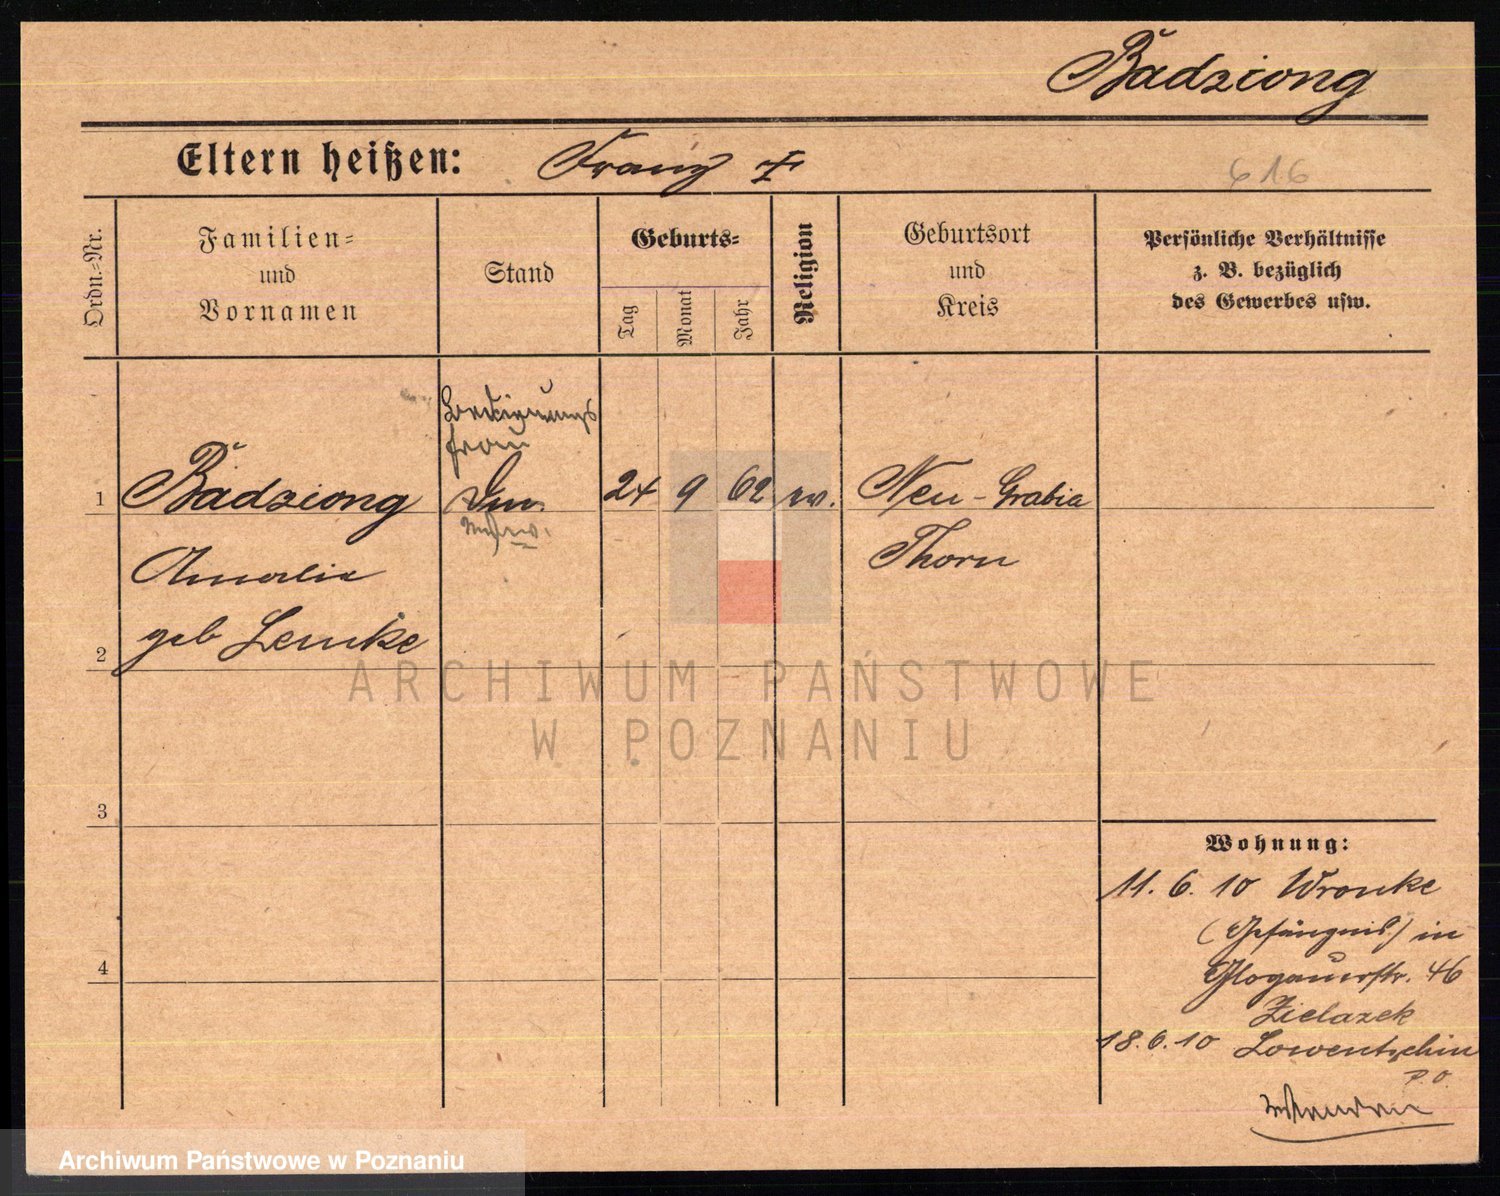 Badziong
Eltern heißen: Franz
616
Ordn.-Nr.
Familien-
und
Vornamen
Stand
Geburts-
Tag
Monat
Jahr
Religion
Geburtsort
und
Kreis
Persönliche Verhältnisse
z. B. bezüglich
des Gewerbes usw.
frau
1 Badziong 24 9 62 ev. Neu-Grabia
Amalie Thorn
geb Lemke
2
3
4
Wohnung:
11. 6. 10 Wronke
(Gefängnis) in
Glogauerstr. 46
Zielazek
18. 6. 10 Lowentschin
P. O.
ARCHIWUM PAŃSTWOWE
W POZNANIU
Archiwum Państwowe w Poznaniu